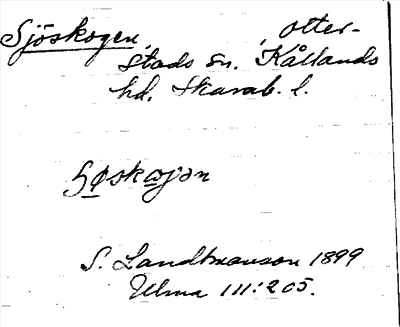 Sjöskogen, Otter-
stads sn. Kållands
hd. Skarab. l.
Søskωjən
S. Landtmanson 1899
Ulma 111:205.